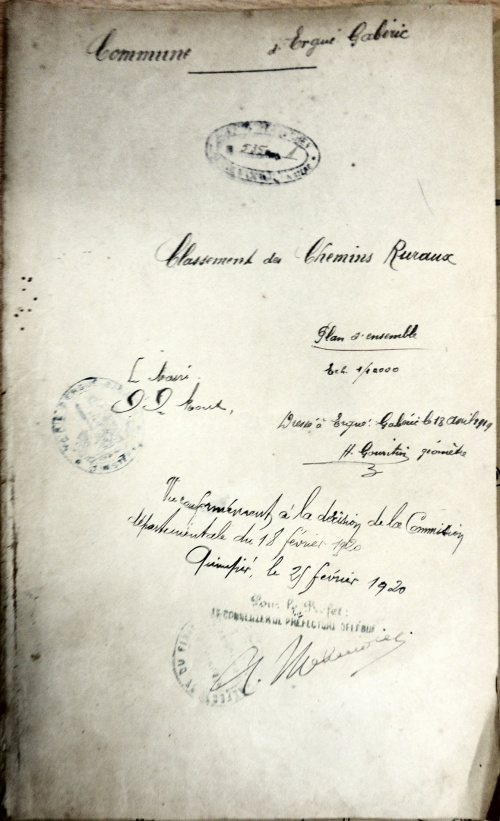 Commune d'Ergué Gabéric
535
Classement des Chemins Ruraux
Plan d'ensemble
Ech. 1/10000
Le Maire
Dressé à Ergué-Gabéric le 18 avril 1919
H. géomètre
Vu conformément à la décision de la Commission
départementale du 18 février 1920
Quimper, le 25 février 1920
Pour le Préfet:
LE CONSEILLER DE PRÉFECTURE DÉLÉGUÉ